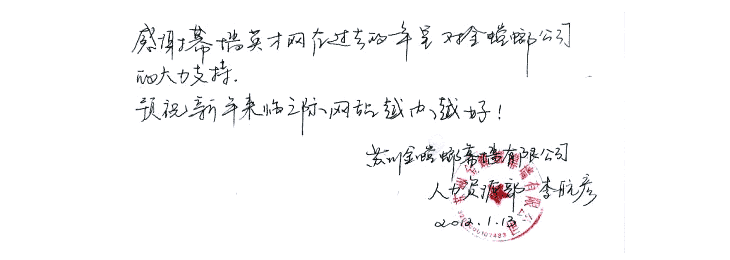 感谢幕墙英才网在过去的一年里对金螳螂公司
的大力支持.
预祝新年来临之际,网站越办越好!
苏州金螳螂幕墙有限公司
人力资源部 李航彦
2012.1.13